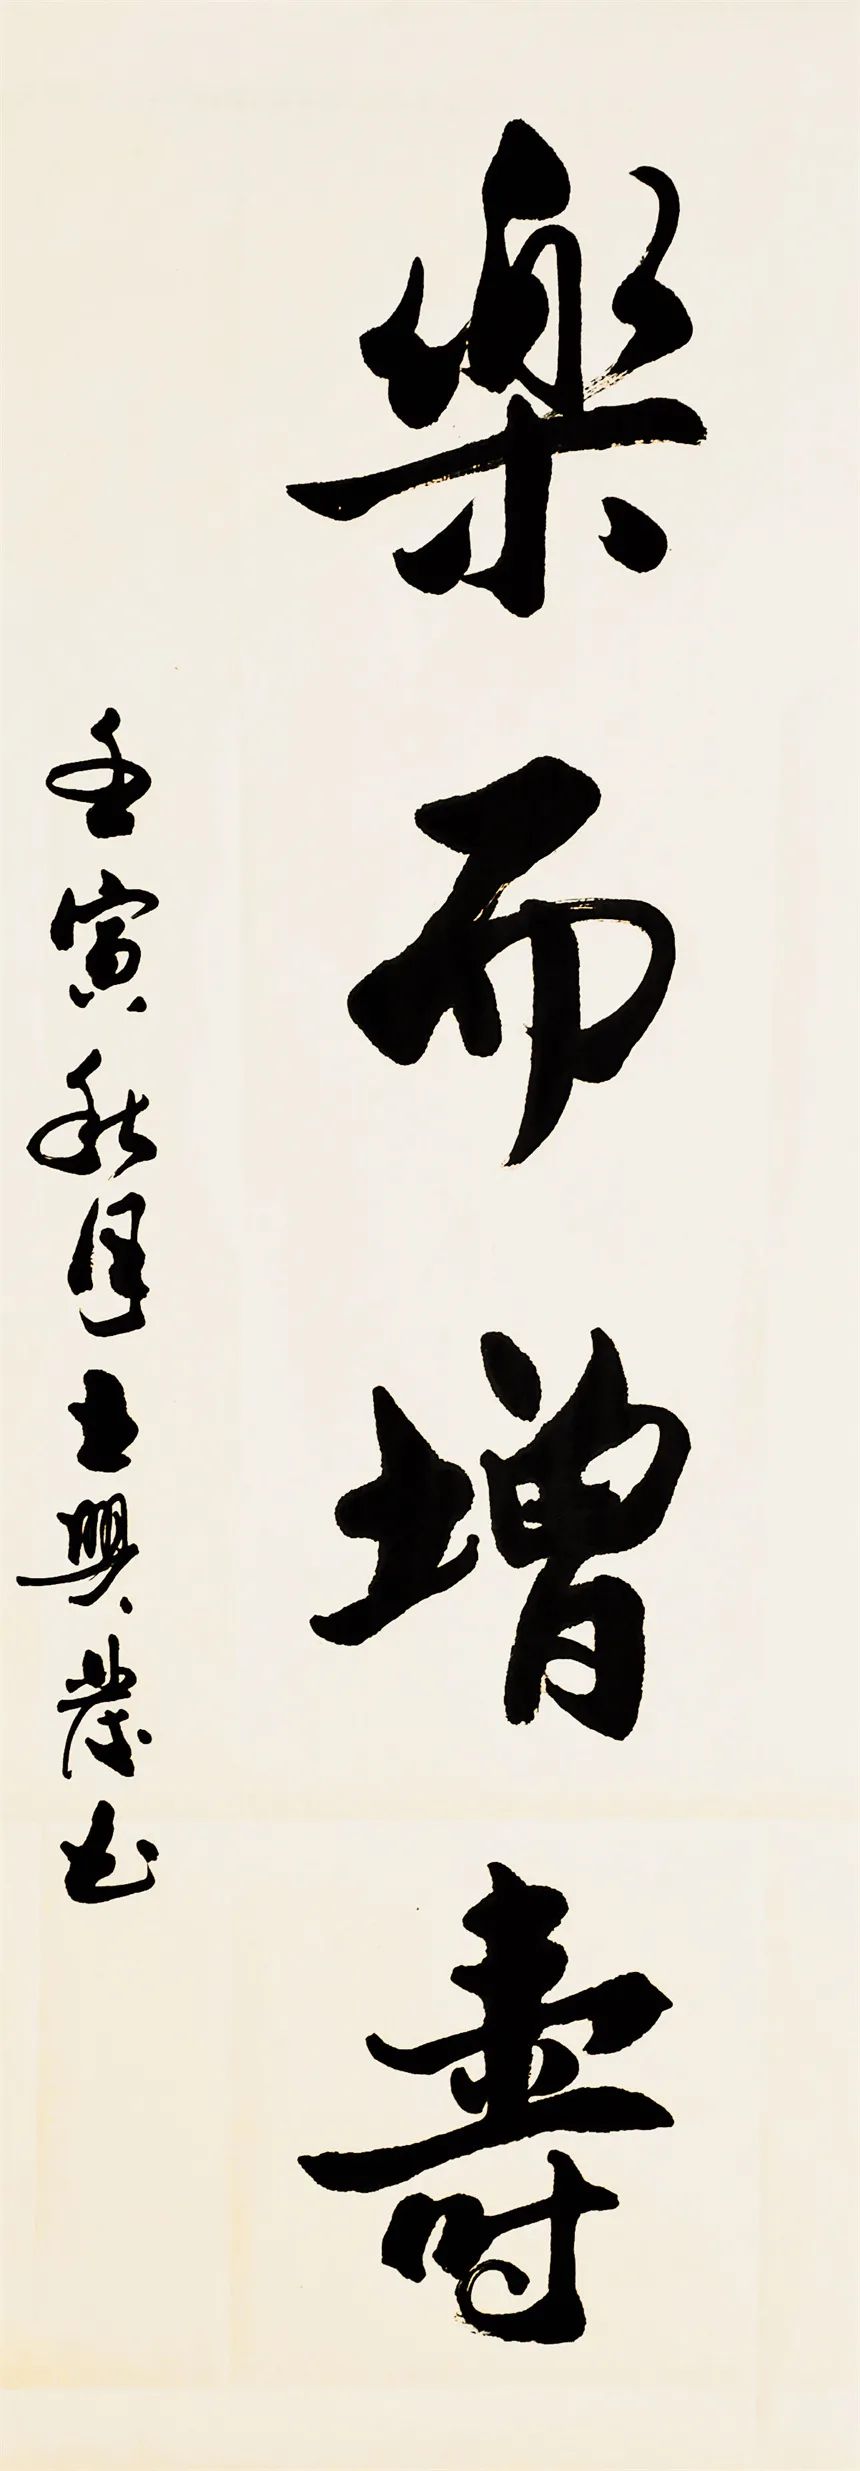 樂而增壽
壬寅秋月王興業书